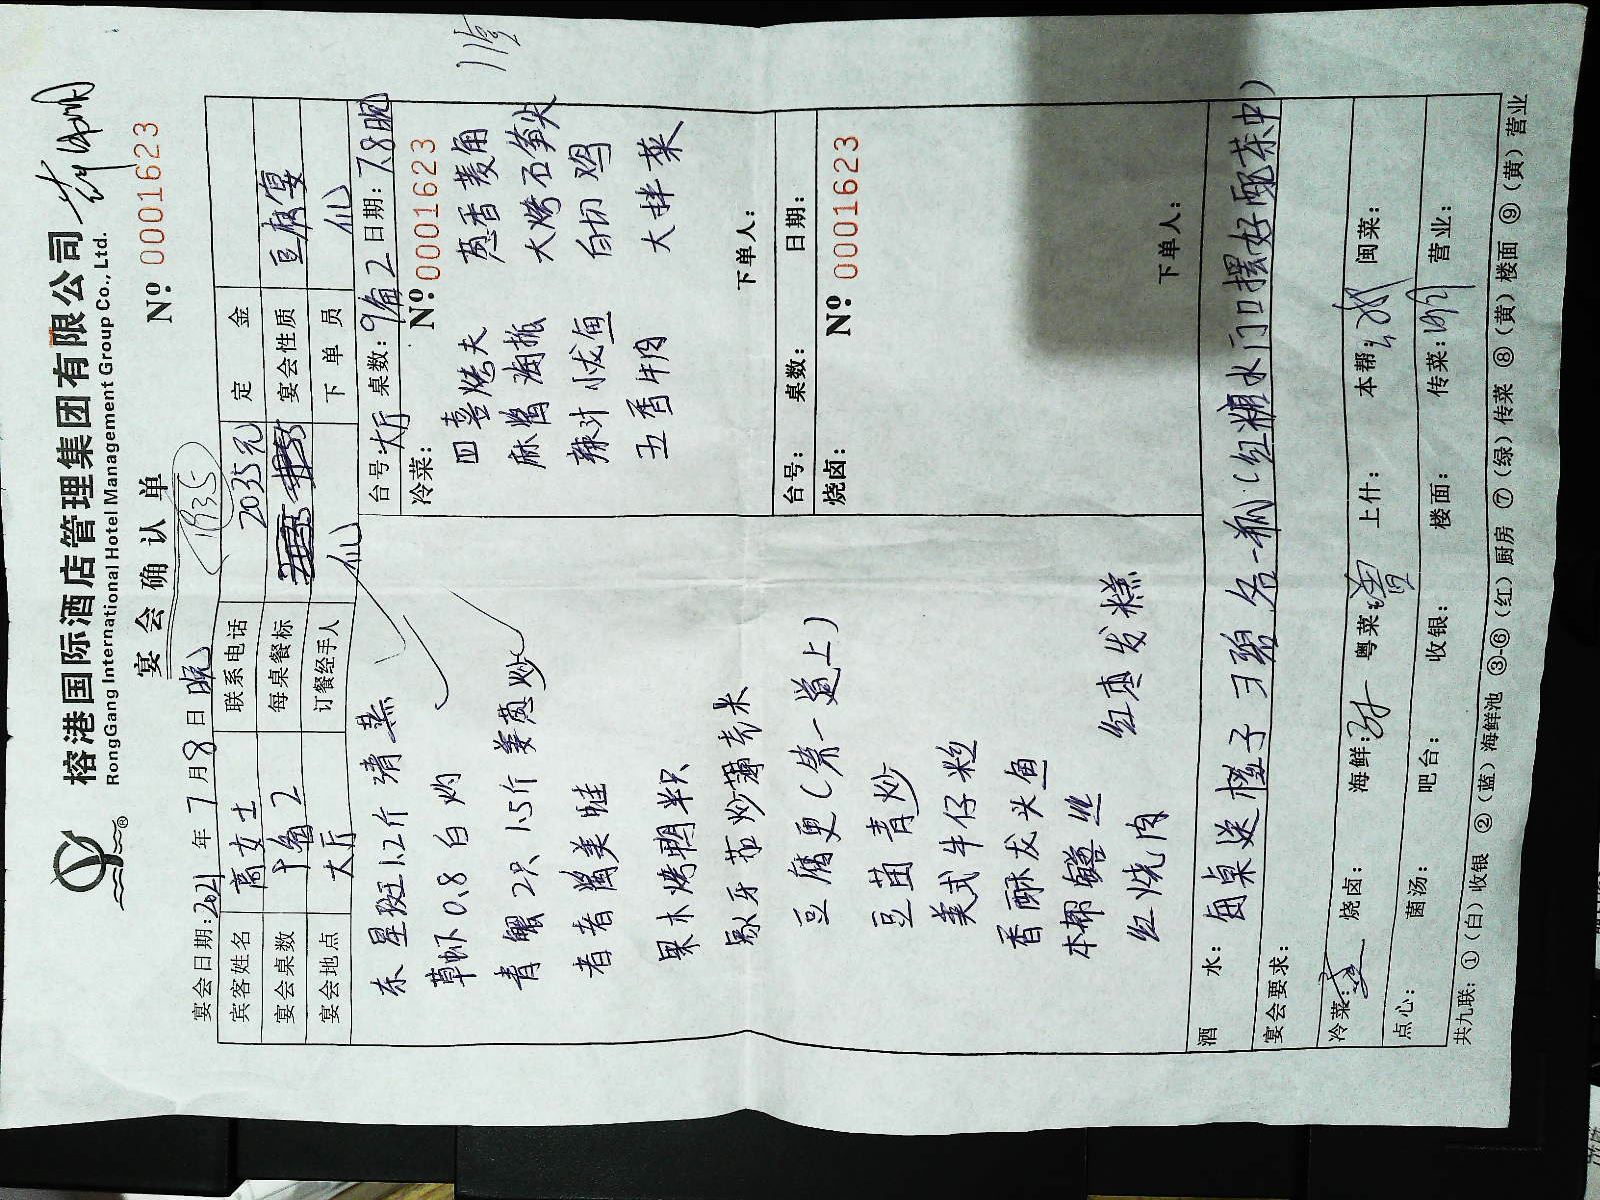 榕港国际酒店管理集团有限公司
RongGang International Hotel Management Group Co., Ltd.
宴会确认单
1835
Nº 0001623
宴会日期:2021年7月8日晚
宾客姓名 高女士 联系电话 2035元 定金
宴会桌数 每桌餐标 宴会性质 豆腐宴
宴会地点 大厅 订餐经手人 下单员
东星斑1.2斤清蒸
草虾0.8白灼
青蟹2只1.5斤姜葱炒
者者酱美蛙
果木烤鸭半只
象牙茄炒
豆腐更(第一道上)
豆苗青炒
美式牛仔粒
香酥龙头鱼
本帮鳝丝
红烧肉 红枣发糕
台号:大厅 桌数:9备2 日期:7.8晚
冷菜: Nº:0001623
四喜烤夫 葱香菱角
麻酱海蜇 大烤石笋尖
辣汁小龙鱼 白切鸡
五香牛肉 大拌菜
下单人:
台号: 桌数: 日期:
烧卤: Nº 0001623
下单人:
酒水: 每桌送橙子 雪碧 各一瓶(红糖水门口摆好
宴会要求:
冷菜: 烧卤: 海鲜: 粤菜: 上什: 本帮: 闽菜:
点心: 菌汤: 吧台: 收银: 楼面: 传菜: 营业:
共九联: ①(白)收银 ②(蓝)海鲜池 ③-⑥(红)厨房 ⑦(绿)传菜 ⑧(黄)楼面 ⑨(黄)营业